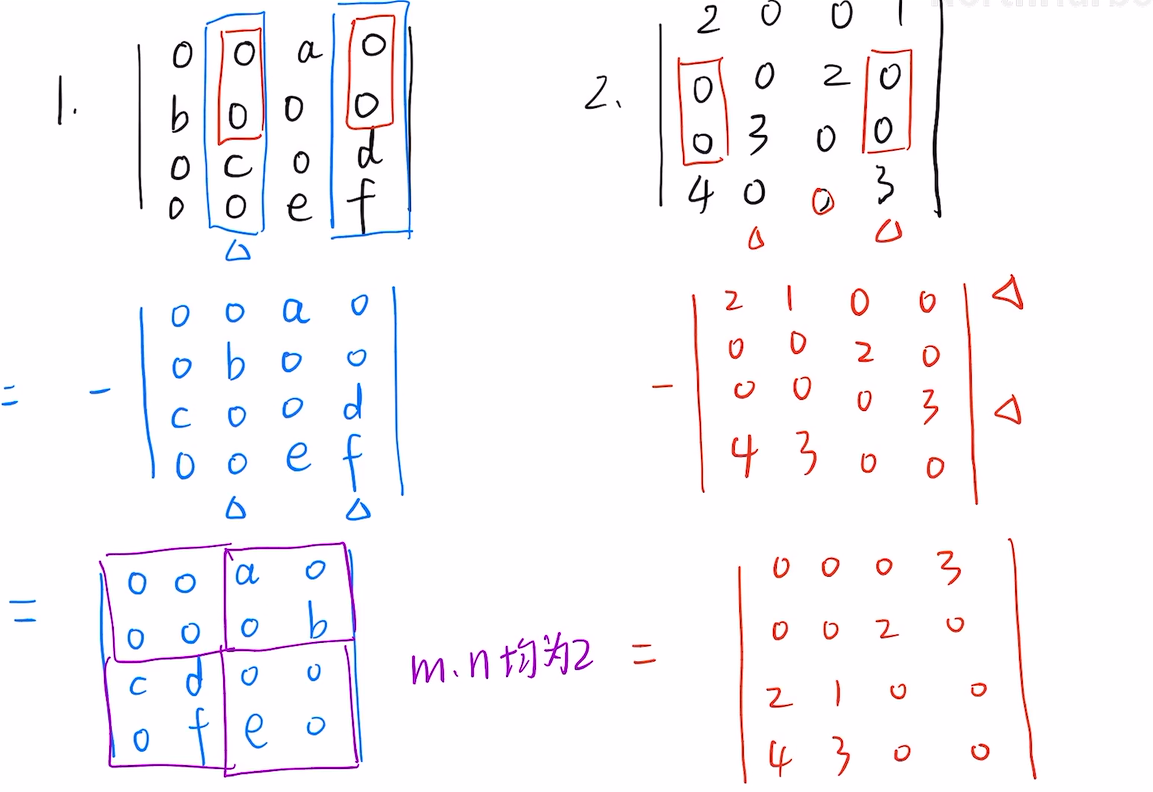 1.
0 0 a 0
b 0 0 0
0 c 0 d
0 0 e f
= -
0 0 a 0
0 b 0 0
c 0 0 d
0 0 e f
=
0 0 a 0
0 0 0 b
c d 0 0
0 f e 0
m.n均为2
2.
2 0 0 1
0 0 2 0
0 3 0 0
4 0 0 3
-
2 1 0 0
0 0 2 0
0 0 0 3
4 3 0 0
=
0 0 0 3
0 0 2 0
2 1 0 0
4 3 0 0